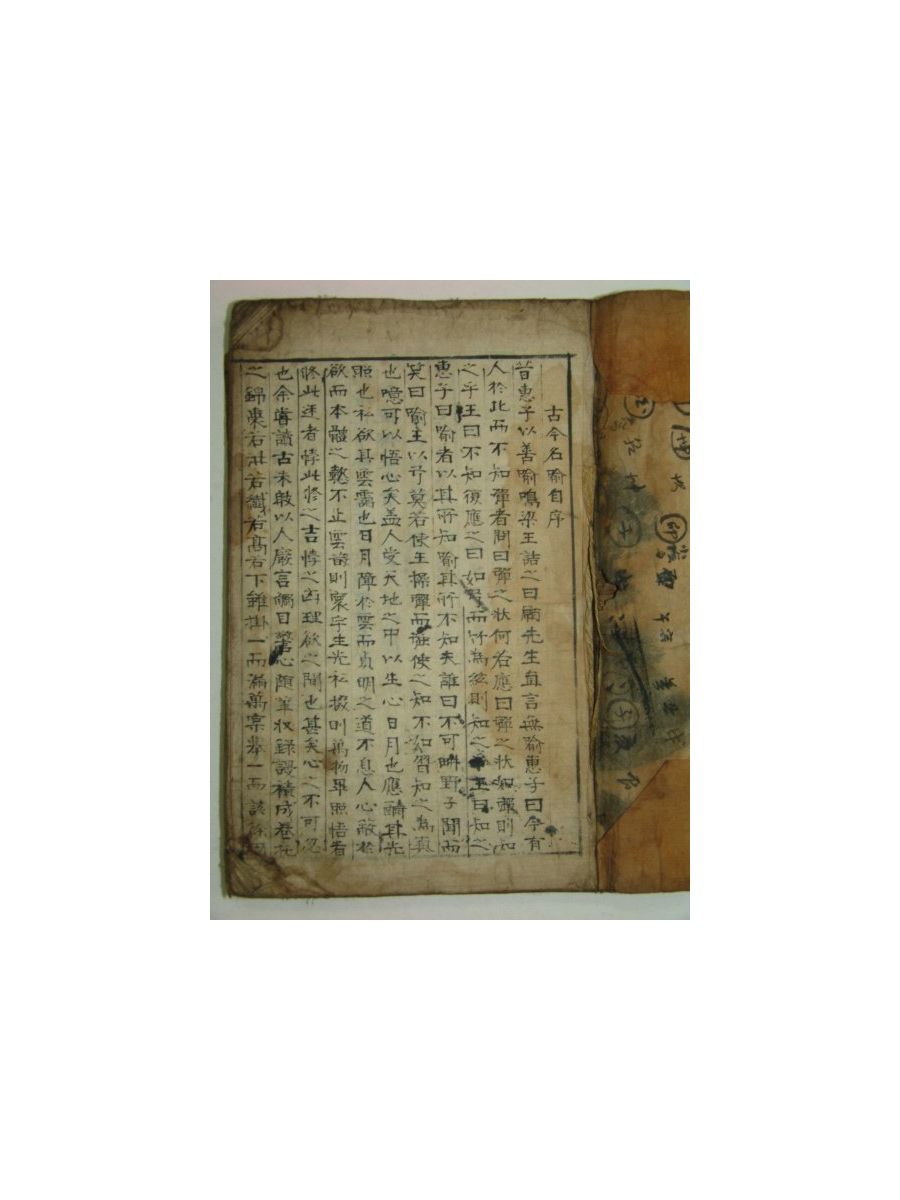 古今名喻自序
昔惠子以善喻鳴梁王詰之曰願先生直言無喻惠子曰今有
人於此而不知彈者問曰彈之狀何若應曰彈之狀如彈則知
之乎王曰不知復應之曰如弓而竹為弦則知之乎王曰知之
惠子曰喻者以其所知喻其所不知夫誰曰不可耕野子聞而
笑曰喻王以弓莫若使王操彈而 使之知不如習知之為真
也噫可以悟心矣盖人受天地之中以生心日月也應酧其光
照也私欲其雲靄也日月障於雲而貞明之道不息人心蔽於
欲而本體之懿不止雲歛則寰宇生光私撥則萬物畢照悟者
修此迷者悖此修之吉悖之凶理欲之間也甚矣心之不可忽
也余嘗讀古未敢以人廢言觸日警心隨筆收録謾積成卷
之錦 右 右 右高右下雖掛一而漏萬 一而該